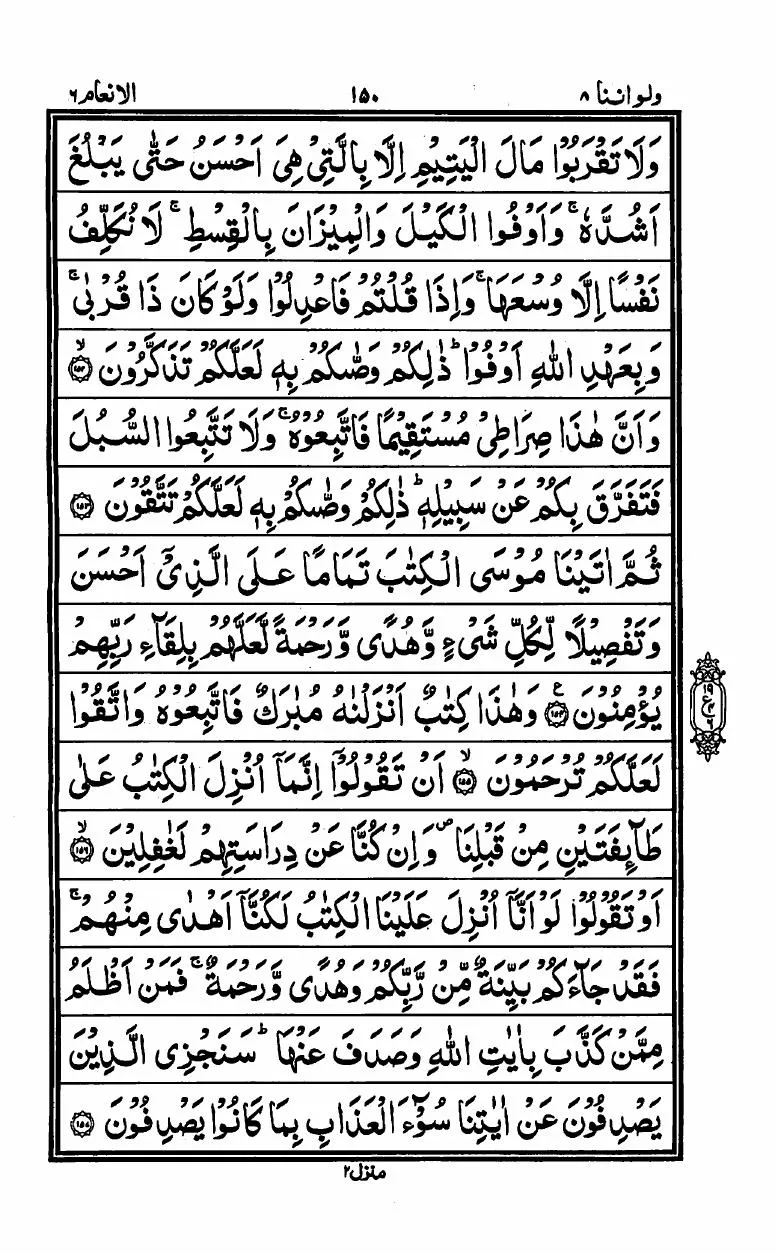 ولواننا ۸ ۱۵۰ الانعام ۶
وَلَا تَقْرَبُوْا مَالَ الْيَتِيْمِ اِلَّا بِالَّتِىْ هِىَ اَحْسَنُ حَتّٰى يَبْلُغَ
اَشُدَّهٗ ۚ وَاَوْفُوا الْكَيْلَ وَالْمِيْزَانَ بِالْقِسْطِ ۚ لَا نُكَلِّفُ
نَفْسًا اِلَّا وُسْعَهَا ۚ وَاِذَا قُلْتُمْ فَاعْدِلُوْا وَلَوْ كَانَ ذَا قُرْبٰى ۚ
وَبِعَهْدِ اللّٰهِ اَوْفُوْا ؕ ذٰلِكُمْ وَصّٰٮكُمْ بِهٖ لَعَلَّكُمْ تَذَكَّرُوْنَ ۙ‏ ﴿۱۵۲﴾
وَاَنَّ هٰذَا صِرَاطِىْ مُسْتَقِيْمًا فَاتَّبِعُوْهُ ۚ وَلَا تَتَّبِعُوا السُّبُلَ
فَتَفَرَّقَ بِكُمْ عَنْ سَبِيْلِهٖ ؕ ذٰلِكُمْ وَصّٰٮكُمْ بِهٖ لَعَلَّكُمْ تَتَّقُوْنَ ﴿۱۵۳﴾
ثُمَّ اٰتَيْنَا مُوْسَى الْكِتٰبَ تَمَامًا عَلَى الَّذِىْۤ اَحْسَنَ
وَتَفْصِيْلًا لِّكُلِّ شَىْءٍ وَّهُدًى وَّرَحْمَةً لَّعَلَّهُمْ بِلِقَآءِ رَبِّهِمْ
يُؤْمِنُوْنَ ﴿۱۵۴﴾ ع وَهٰذَا كِتٰبٌ اَنْزَلْنٰهُ مُبٰرَكٌ فَاتَّبِعُوْهُ وَاتَّقُوْا
۱۹ ع ۴ ۶
لَعَلَّكُمْ تُرْحَمُوْنَ ۙ‏ ﴿۱۵۵﴾ اَنْ تَقُوْلُوْۤا اِنَّمَاۤ اُنْزِلَ الْكِتٰبُ عَلٰى
طَآٮِٕفَتَيْنِ مِنْ قَبْلِنَا ۖ وَاِنْ كُنَّا عَنْ دِرَاسَتِهِمْ لَغٰفِلِيْنَ ۙ‏ ﴿۱۵۶﴾
اَوْ تَقُوْلُوْا لَوْ اَنَّاۤ اُنْزِلَ عَلَيْنَا الْكِتٰبُ لَكُنَّاۤ اَهْدٰى مِنْهُمْ ۚ
فَقَدْ جَآءَكُمْ بَيِّنَةٌ مِّنْ رَّبِّكُمْ وَهُدًى وَّرَحْمَةٌ ۚ فَمَنْ اَظْلَمُ
مِمَّنْ كَذَّبَ بِاٰيٰتِ اللّٰهِ وَصَدَفَ عَنْهَا ؕ سَنَجْزِى الَّذِيْنَ
يَصْدِفُوْنَ عَنْ اٰيٰتِنَا سُوْٓءَ الْعَذَابِ بِمَا كَانُوْا يَصْدِفُوْنَ ﴿۱۵۷﴾
منزل ۲